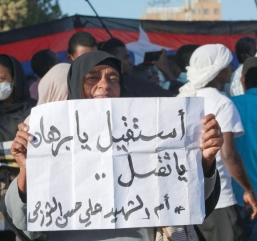 أستقيل يا برهان
يا تفل ..
# أم الشهيد علي حسن الخورجي